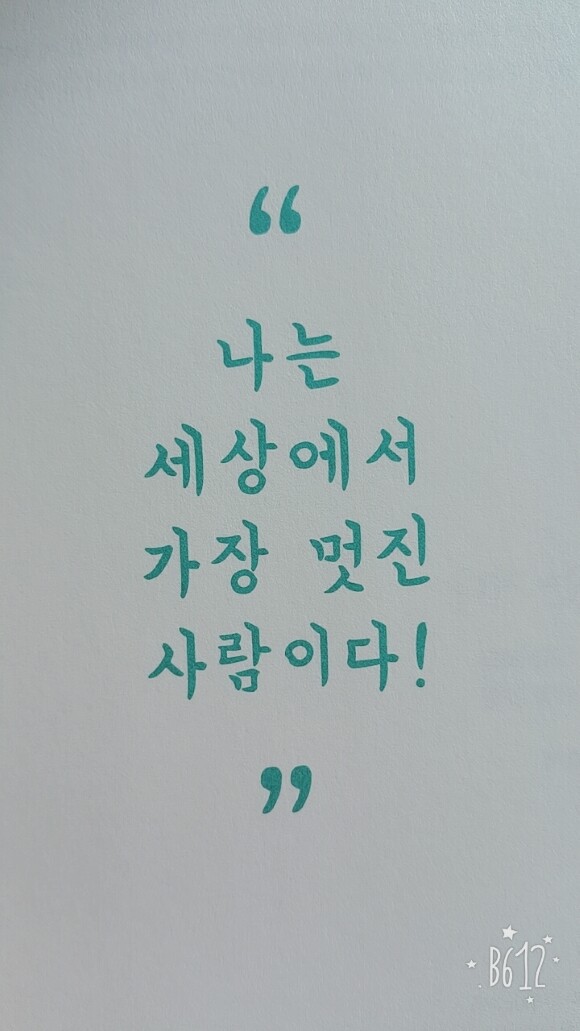 “
나는
세상에서
가장 멋진
사람이다!
”
B612